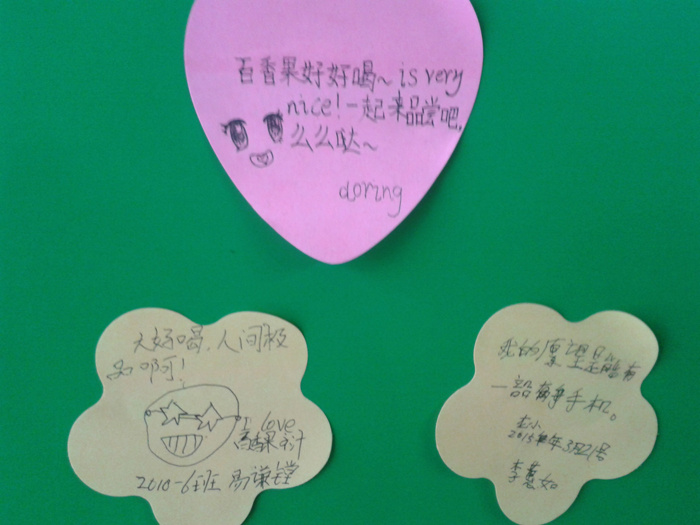 百香果好好喝~ is very
nice!一起来品尝吧,
么么哒~
doring
太好喝,人间极
品啊!
I love
百香果汁
2010-6班
我的愿望是能有
一部苹果手机。
2015年3月21号
李慧如